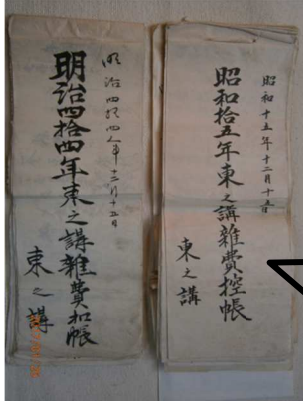 昭和十五年十二月十五日
昭和拾五年東之講雑費控帳
東之講
明治四拾四年十二月十五日
明治四拾四年東之講雑費扣帳
東之講